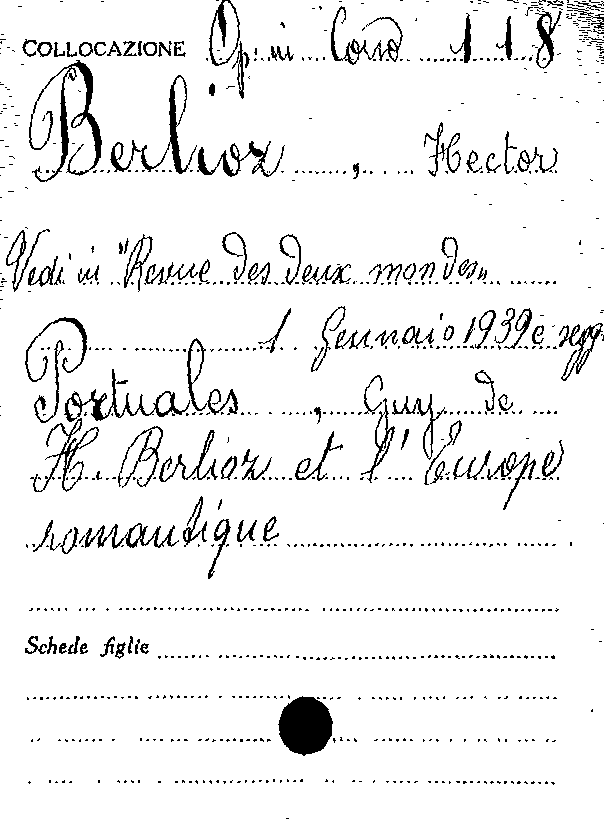 COLLOCAZIONE Op. in Corso 118
Berlioz, Hector
Vedi in "Revue des deux mondes"
1 Gennaio 1939 e segg.
Portuales, Guy de
H. Berlioz et l'Europe
romantique
Schede figlie